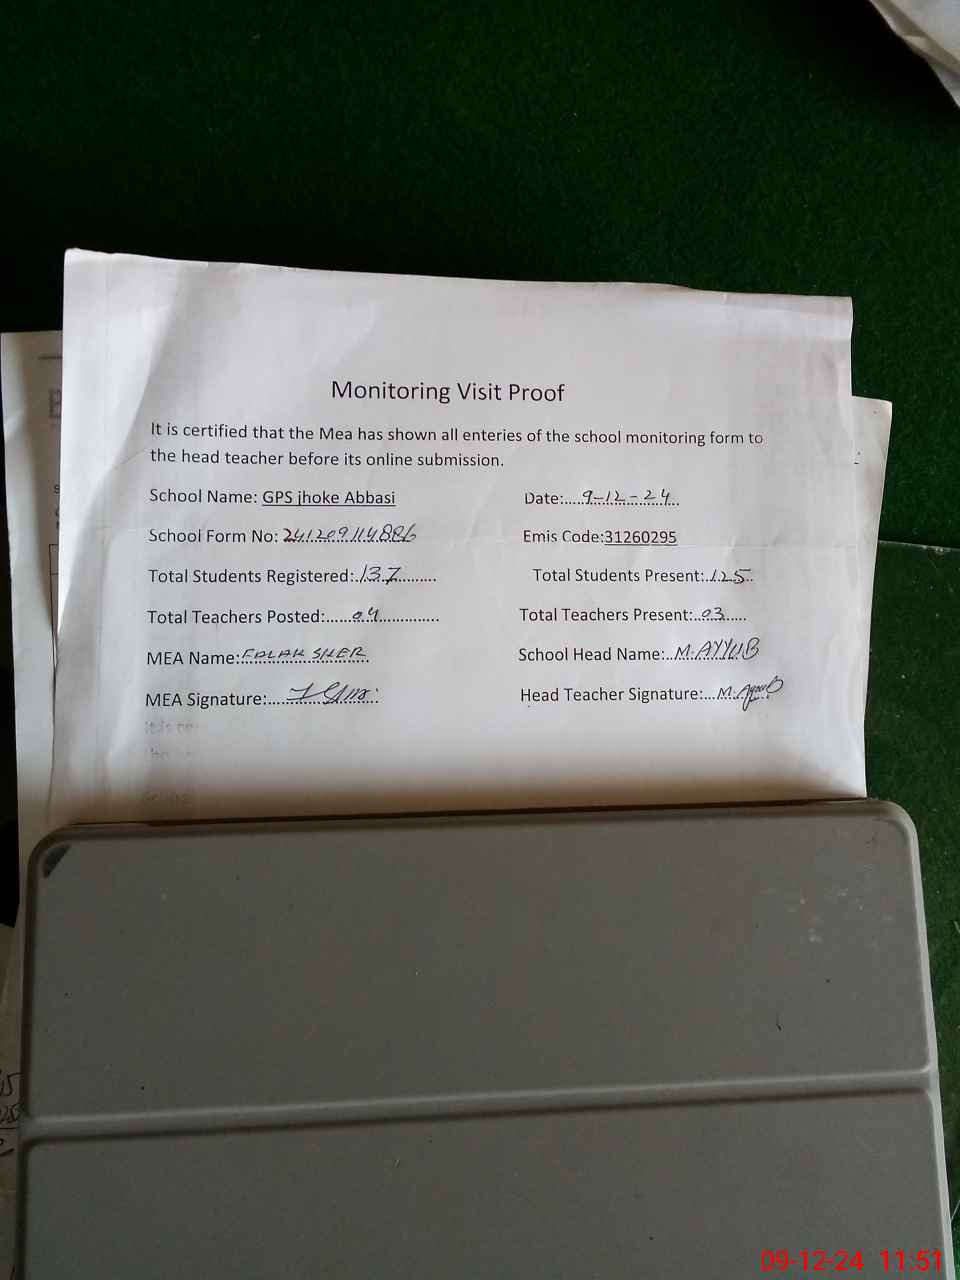 Monitoring Visit Proof
It is certified that the Mea has shown all enteries of the school monitoring form to
the head teacher before its online submission.
School Name: GPS jhoke Abbasi Date:....9-12-24..
School Form No: 241209114886 Emis Code:31260295
Total Students Registered:.137......... Total Students Present:.125..
Total Teachers Posted:......04.............. Total Teachers Present:..03.....
MEA Name: FALAK SHER School Head Name:..M.AYYUB
MEA Signature:...... Head Teacher Signature:...M.Ayoub
It is ce
09-12-24 11:51